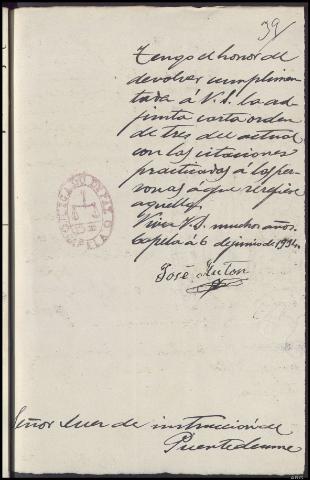 39
Tengo el honor de
devolver cumplimen-
tada á V.S. la ad-
junta carta orden
de tres del actual
con las citaciones
practicadas á las per-
sonas á que refiere
aquella.
Viva V.S. muchos años.
Capela á 6 de junio de 1914.
José Anton
JUZGADO
CAPELA
Señor Juez de instrucción de
Puentedeume